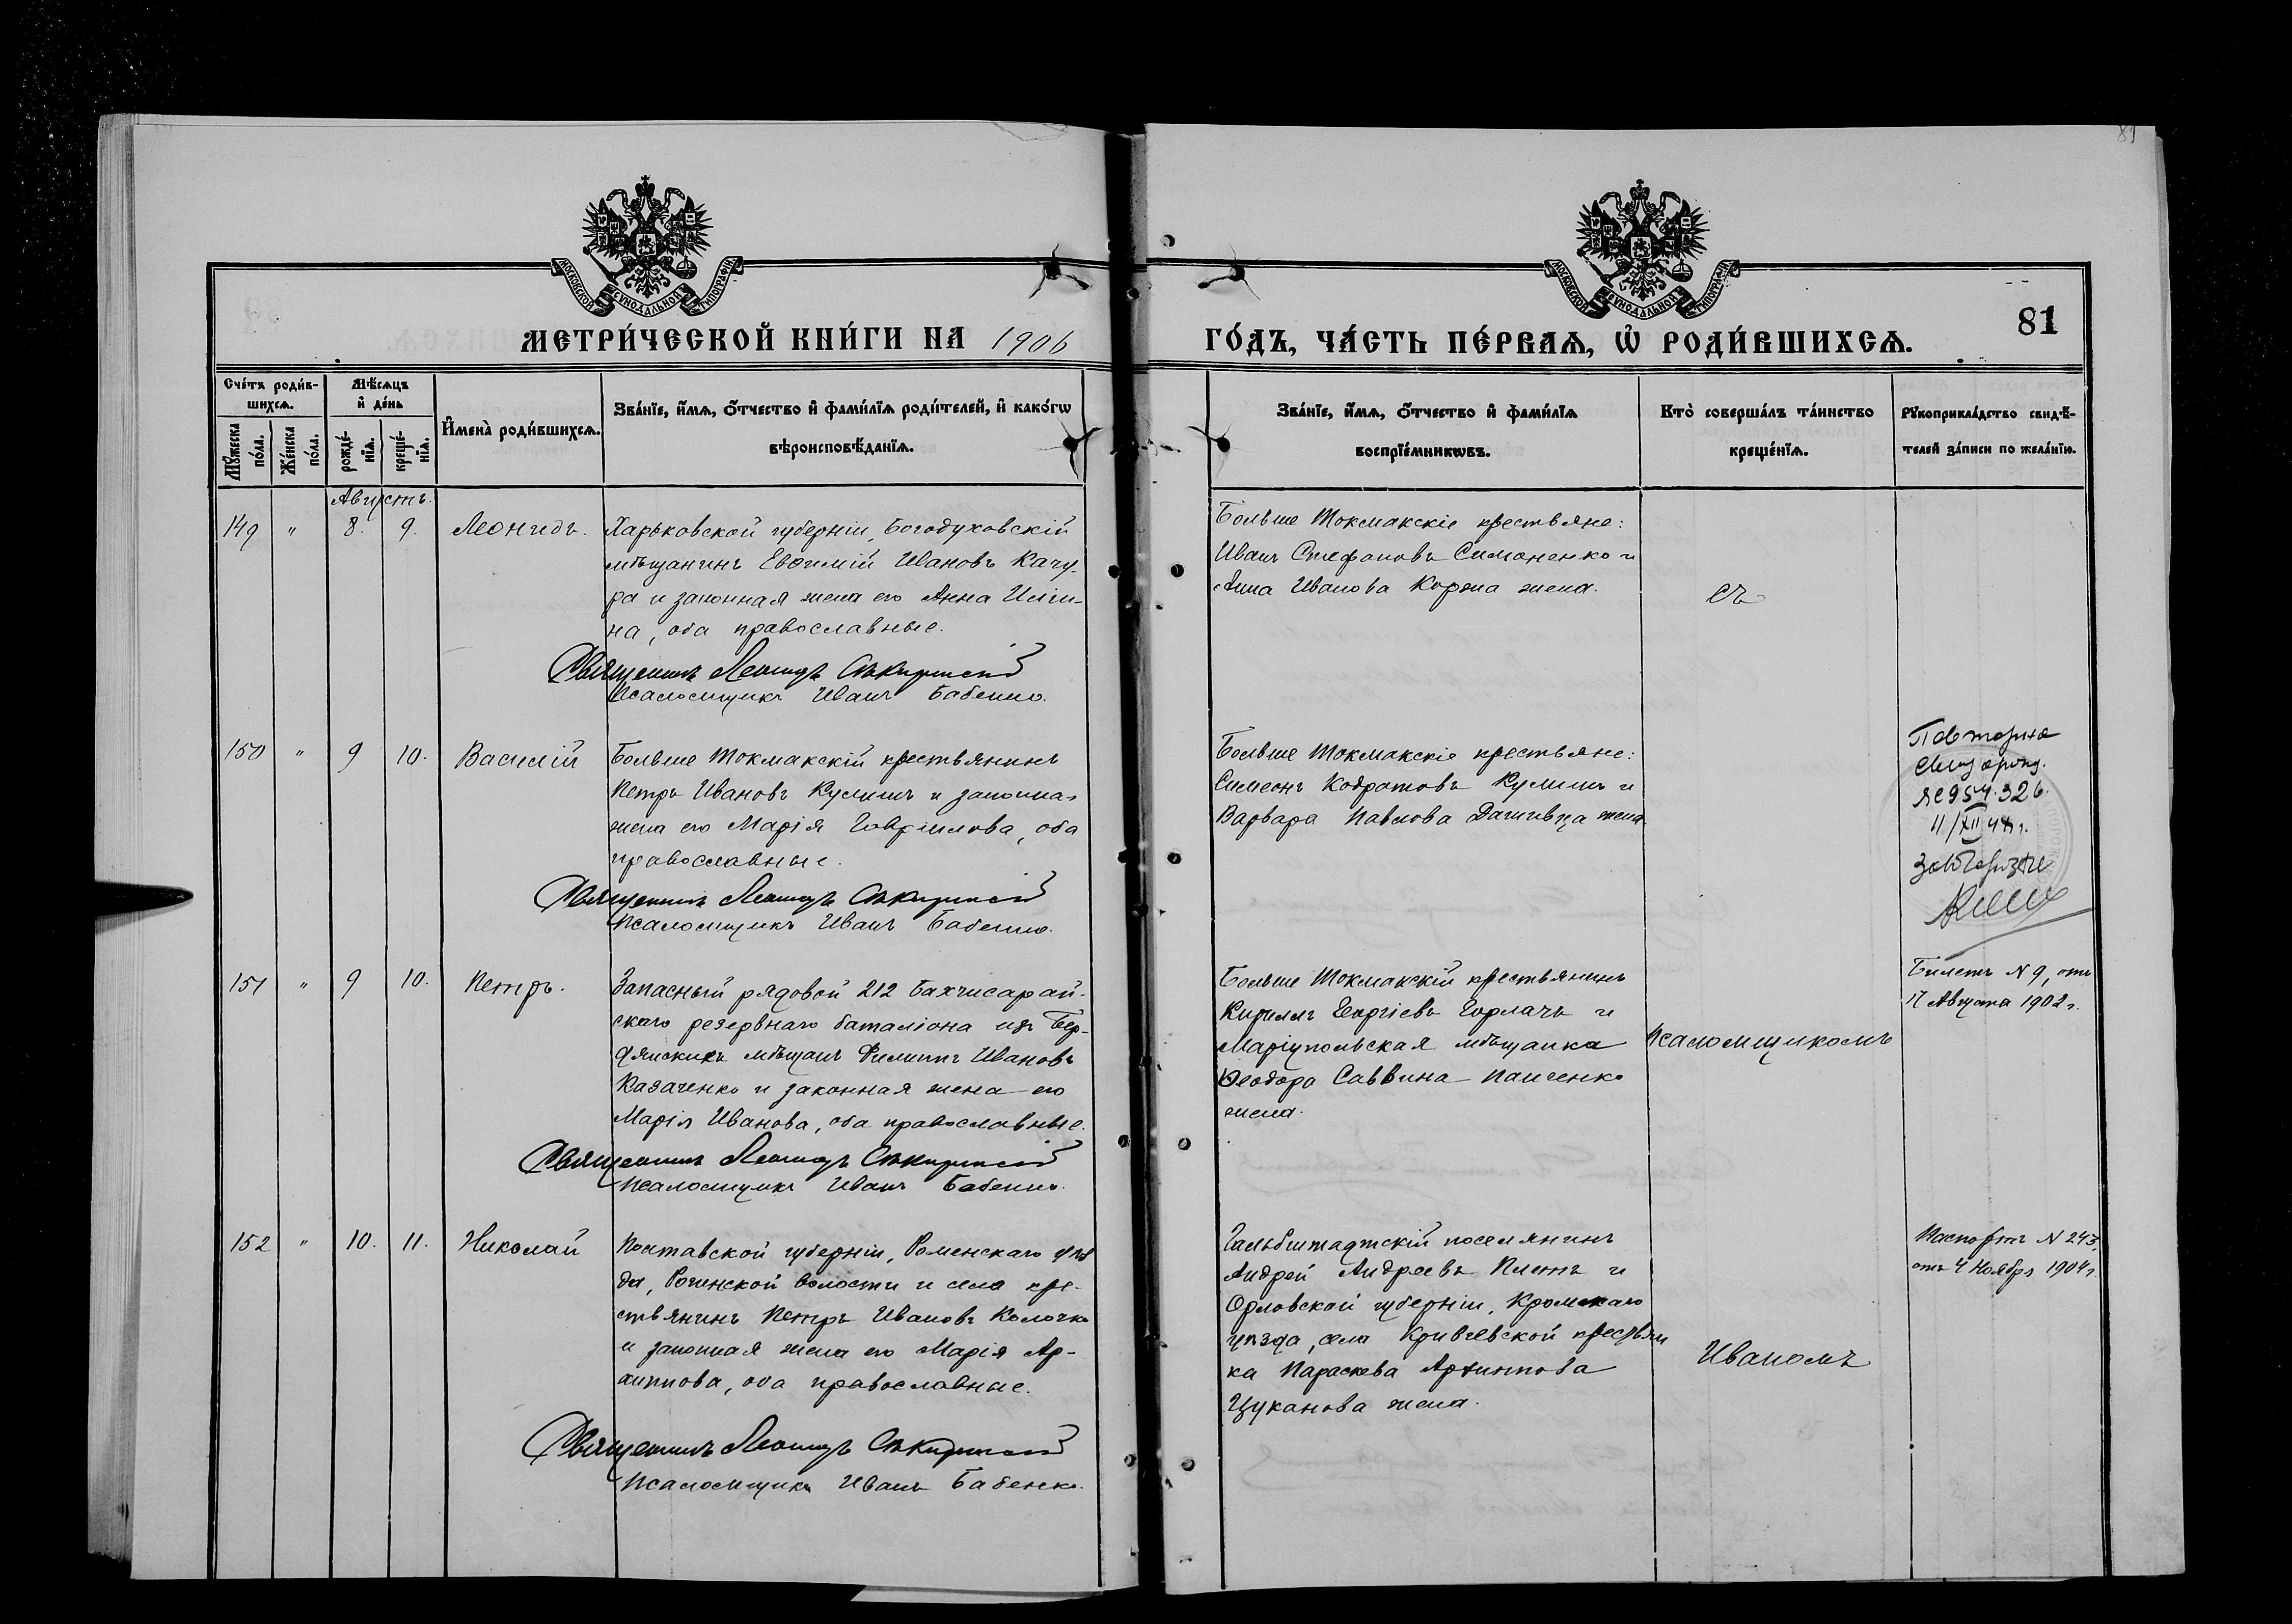 81
МОСКОВСКОЙ СѴНОДАЛЬНОЙ ТИПОГРАФІИ
МОСКОВСКОЙ СѴНОДАЛЬНОЙ ТИПОГРАФІИ
МЕТРИ́ЧЕСКОЙ КНИ́ГИ НА 1906
ГО́ДЪ, ЧА́СТЬ ПЕ́РВАѦ, Ѡ҆ РОДИ́ВШИХСѦ.
81
Сче́тъ роди́в-
шихсѧ.
Мѣ́сѧцъ
и҆ де́нь
Мꙋ́жеска
по́ла.
Же́нска
по́ла.
рожде́-
нїѧ.
креще́-
нїѧ.
И҆мена̀ роди́вшихсѧ.
Зва́нїе, и҆́мѧ, ѻ҆́тчество и҆ фами́лїѧ роди́телей, и҆ како́гѡ
вѣроисповѣ́данїѧ.
Зва́нїе, и҆́мѧ, ѻ҆́тчество и҆ фами́лїѧ
воспрїе́мникѡвъ.
Кто̀ соверша́лъ та́инство
креще́нїѧ.
Рꙋкоприкла́дство свидѣ́-
телей за́писи по жела́нїю.
Августъ.
149 " 8. 9. Леонидъ.
Харьковской губерніи, Богодуховскій
мѣщанинъ Евѳимій Ивановъ Качу-
ра и законная жена его Анна Иліи-
на, оба православные.
Священникъ Леонидъ
Псаломщикъ Иванъ Бабенко.
Больше Токмакскіе крестьяне:
Иванъ Стефановъ Симоненко и
Анна Иванова Коржа жена.
съ
150 " 9 10. Василій
Больше Токмакскій крестьянинъ
Петръ Ивановъ Кулишъ и законная
жена его Марія Гавріилова, оба
православные.
Священникъ Леонидъ
Псаломщикъ Иванъ Бабенко.
Больше Токмакскіе крестьяне:
Симеонъ Кодратовъ Кулишъ и
Варвара Павлова жена.
Повторне
11/XII
151 " 9 10. Петръ.
Запасный рядовой 212 Бахчисарай-
скаго резервнаго баталіона изъ Бер-
дянскихъ мѣщанъ Филиппъ Ивановъ
Казаченко и законная жена его
Марія Иванова, оба православные.
Священникъ Леонидъ
Псаломщикъ Иванъ Бабенко.
Больше Токмакскій крестьянинъ
Кириллъ Георгіевъ Горлачъ и
Маріупольская мѣщанка
Ѳеодора Саввина Панченко
жена.
Псаломщикомъ
Билетъ N 9, отъ
17 Августа 1902 г.
152 " 10. 11. Николай
Полтавской губерніи, Роменскаго уѣз
да, волости и села кре-
стьянинъ Петръ Ивановъ Колочко
и законная жена его Марія Ар-
хиппова, оба православные.
Священникъ Леонидъ
Псаломщикъ Иванъ Бабенко.
Гальбштадтскій поселянинъ
Андрей Андреевъ и
Орловской губерніи, Кромскаго
уѣзда, села Кривчевской крестьян
ка Параскева Архиппова
Цуканова жена.
Иваномъ
Паспортъ N 243,
отъ 4 Ноября 1904 г.